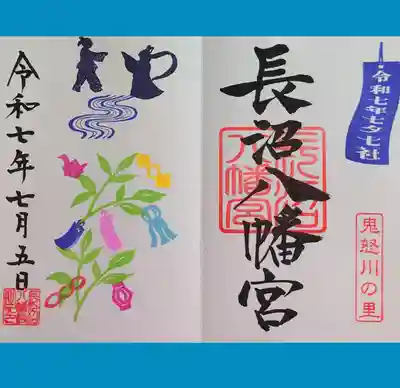 令和七年七夕七社
長沼八幡宮
鬼怒川の里
令和七年七月五日